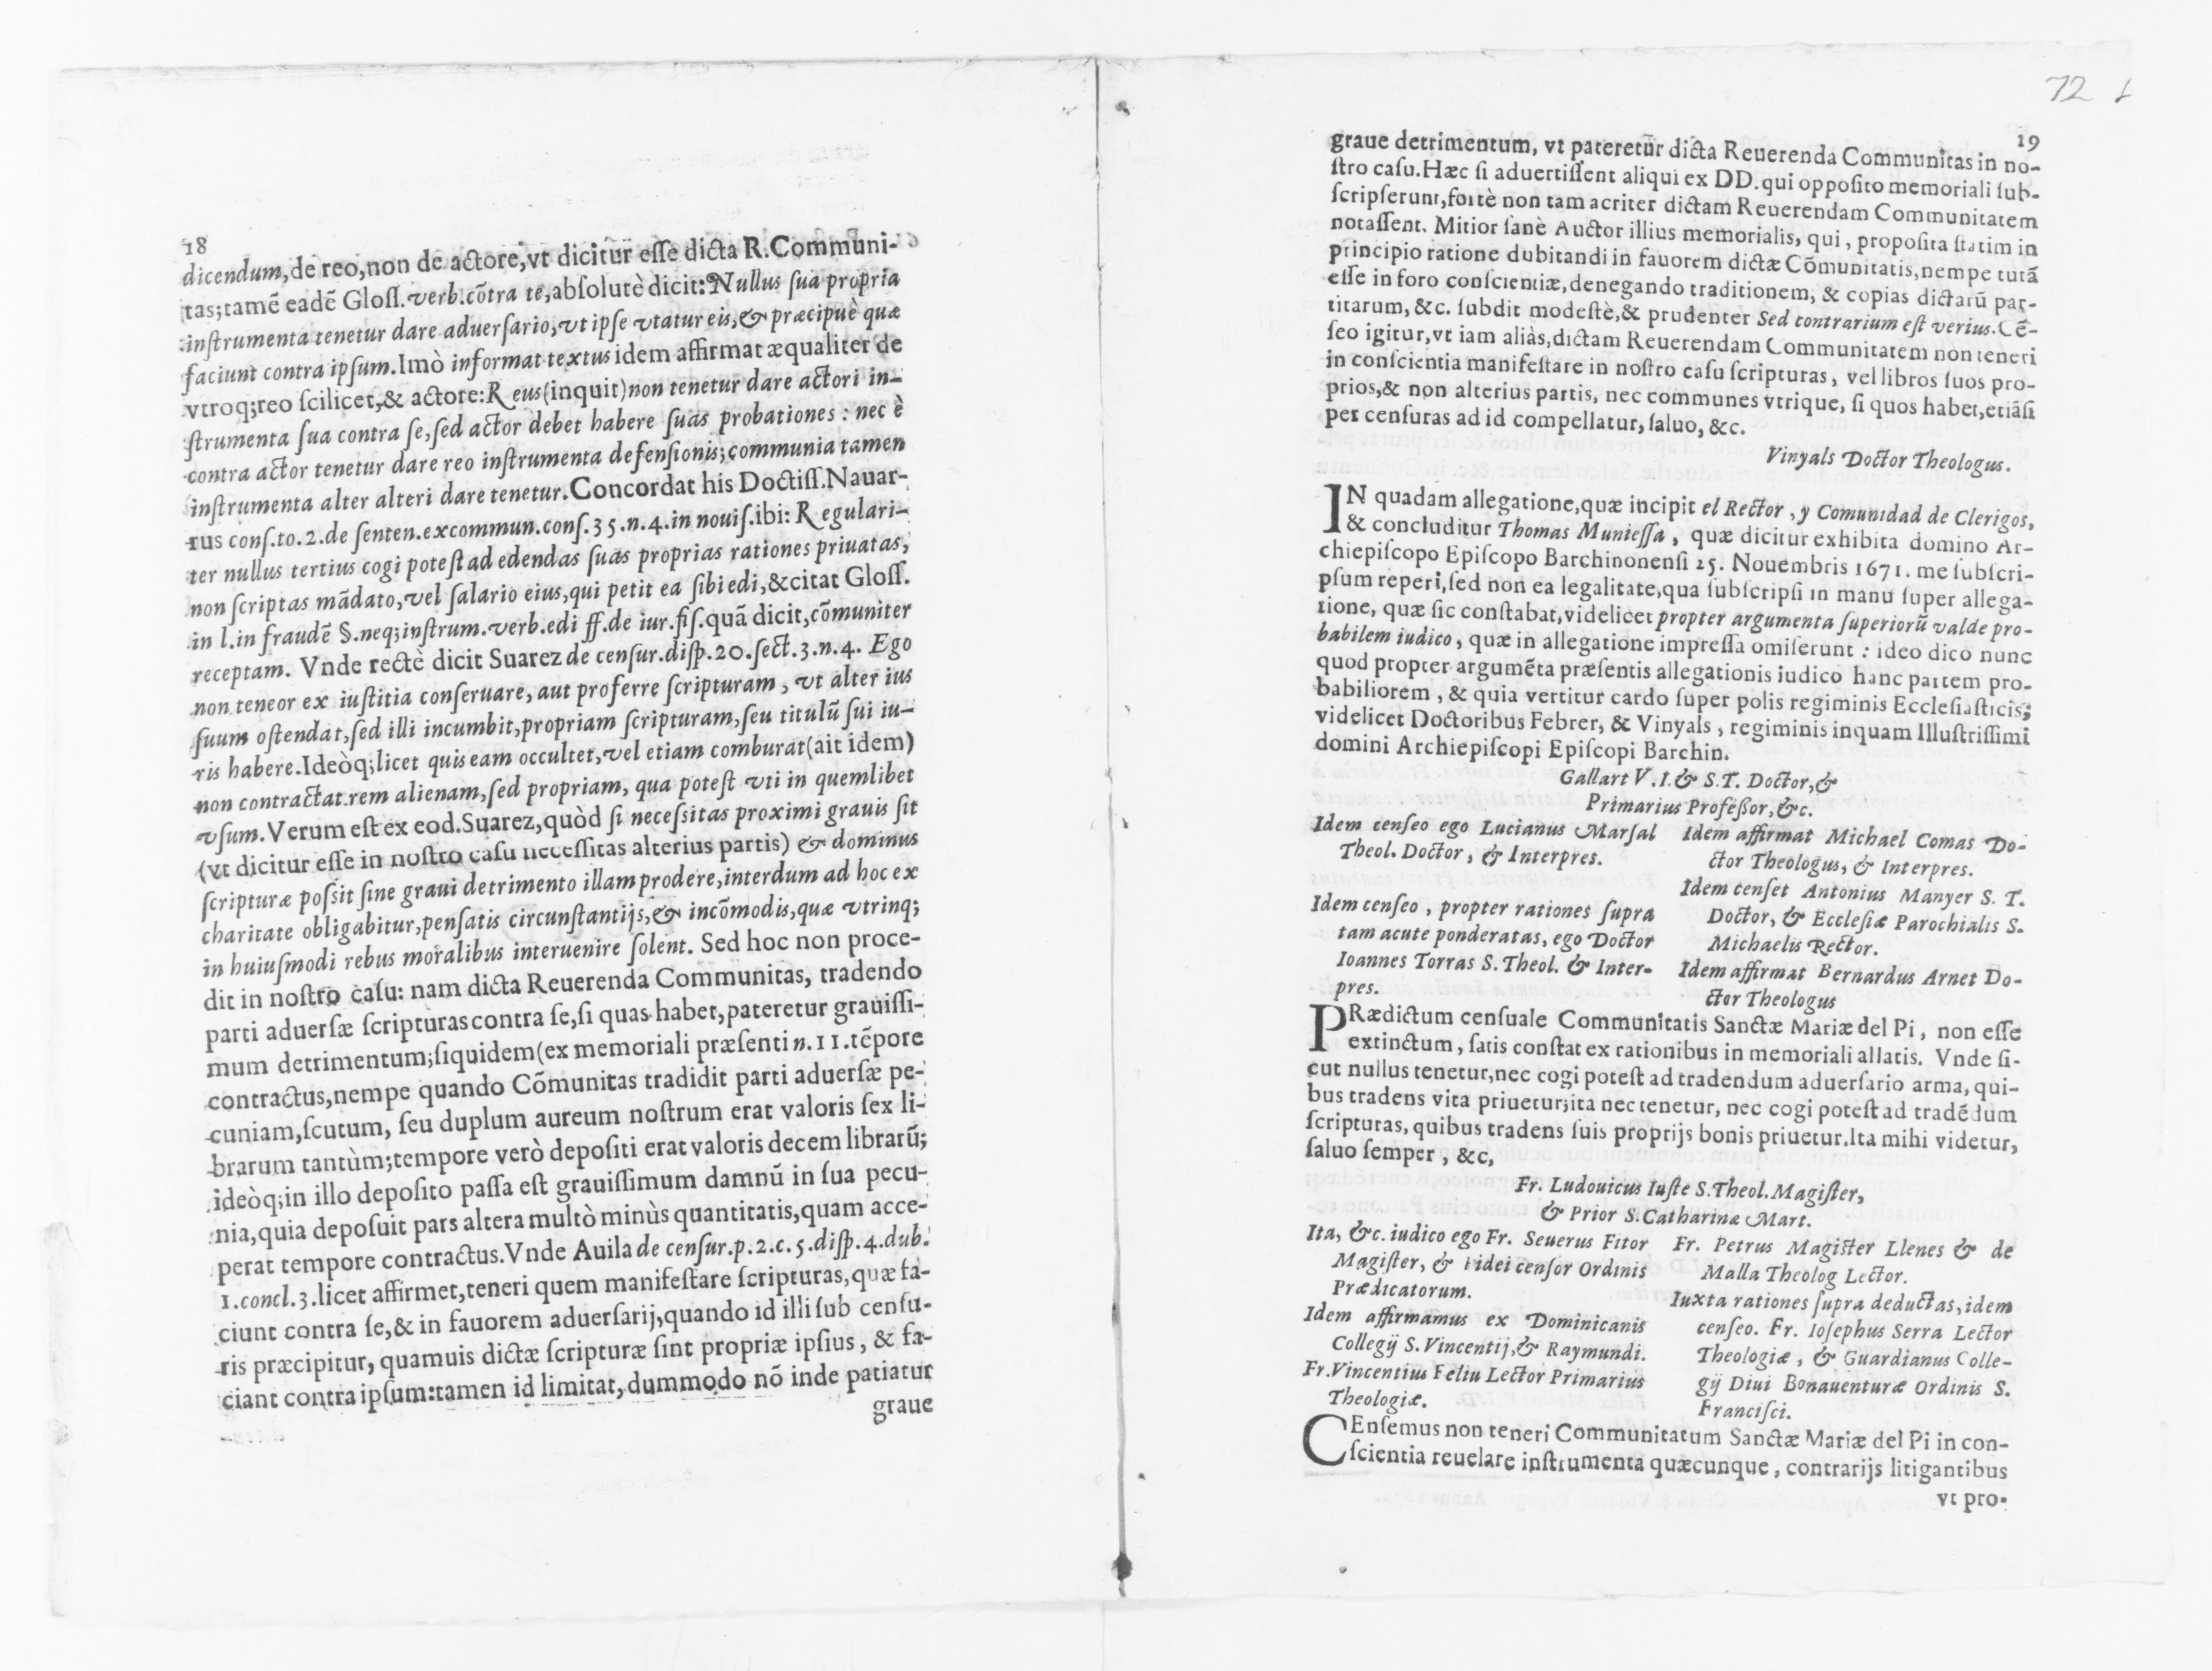 18
dicendum, de reo, non de actore, vt dicitur esse dicta R. Communi-
tas; tamē eadē Gloss. verb. cōtra te, absolutè dicit: Nullus sua propria
instrumenta tenetur dare aduersario, vt ipse vtatur eis, & præcipuè quæ
faciunt contra ipsum. Imò in format textus idem affirmat æqualiter de
vtroq; reo scilicet, & actore: Reus (inquit) non tenetur dare actori in-
strumenta sua contra se, sed actor debet habere suas probationes: nec è
contra actor tenetur dare reo instrumenta defensionis; communia tamen
instrumenta alter alteri dare tenetur. Concordat his Doctiss. Nauar-
rus cons. to. 2. de senten. excommun. cons. 35. n. 4. in nouis. ibi: Regulari-
ter nullus tertius cogi potest ad edendas suas proprias rationes priuatas,
non scriptas mādato, vel salario eius, qui petit ea sibi edi, & citat Gloss.
in l. in fraudē §. neq; instrum. verb. edi ff. de iur. fis. quā dicit, cōmuniter
receptam. Vnde rectè dicit Suarez de censur. disp. 20. sect. 3. n. 4. Ego
non teneor ex iustitia conseruare, aut proferre scripturam, vt alter ius
suum ostendat, sed illi incumbit, propriam scripturam, seu titulū sui iu-
ris habere. Ideòq; licet quis eam occultet, vel etiam comburat (ait idem)
non contractat rem alienam, sed propriam, qua potest vti in quemlibet
vsum. Verum est ex eod. Suarez, quòd si necessitas proximi grauis sit
(vt dicitur esse in nostro casu necessitas alterius partis) & dominus
scripturæ possit sine graui detrimento illam prodere, interdum ad hoc ex
charitate obligabitur, pensatis circunstantijs, & incōmodis, quæ vtrinq;
in huiusmodi rebus moralibus interuenire solent. Sed hoc non proce-
dit in nostro casu: nam dicta Reuerenda Communitas, tradendo
parti aduersæ scripturas contra se, si quas habet, pateretur grauissi-
mum detrimentum; siquidem (ex memoriali præsenti n. 11. tēpore
contractus, nempe quando Cōmunitas tradidit parti aduersæ pe-
cuniam, scutum, seu duplum aureum nostrum erat valoris sex li-
brarum tantùm; tempore verò depositi erat valoris decem librarū;
ideòq; in illo deposito passa est grauissimum damnū in sua pecu-
nia, quia deposuit pars altera multò minùs quantitatis, quam acce-
perat tempore contractus. Vnde Auila de censur. p. 2. c. 5. disp. 4. dub.
1. concl. 3. licet affirmet, teneri quem manifestare scripturas, quæ fa-
ciunt contra se, & in fauorem aduersarij, quando id illi sub censu-
ris præcipitur, quamuis dictæ scripturæ sint propriæ ipsius, & fa-
ciant contra ipsum: tamen id limitat, dummodo nō inde patiatur
graue
72
19
graue detrimentum, vt pateretur dicta Reuerenda Communitas in no-
stro casu. Hæc si aduertissent aliqui ex DD. qui opposito memoriali sub-
scripserunt, fortè non tam acriter dictam Reuerendam Communitatem
notassent. Mitior sanè Auctor illius memorialis, qui, proposita statim in
principio ratione dubitandi in fauorem dictæ Cōmunitatis, nempe tutā
esse in foro conscientiæ, denegando traditionem, & copias dictarū par-
titarum, &c. subdit modestè, & prudenter Sed contrarium est verius. Cē-
seo igitur, vt iam aliàs, dictam Reuerendam Communitatem non teneri
in conscientia manifestare in nostro casu scripturas, vel libros suos pro-
prios, & non alterius partis, nec communes vtrique, si quos habet, etiāsi
per censuras ad id compellatur, saluo, &c.
Vinyals Doctor Theologus.
IN quadam allegatione, quæ incipit el Rector, y Comunidad de Clerigos,
& concluditur Thomas Muniessa, quæ dicitur exhibita domino Ar-
chiepiscopo Episcopo Barchinonensi 25. Nouembris 1671. me subscri-
psum reperi, sed non ea legalitate, qua subscripsi in manu super allega-
tione, quæ sic constabat, videlicet propter argumenta superiorū valde pro-
babilem iudico, quæ in allegatione impressa omiserunt: ideo dico nunc
quod propter argumēta præsentis allegationis iudico hanc partem pro-
babiliorem, & quia vertitur cardo super polis regiminis Ecclesiasticis;
videlicet Doctoribus Febrer, & Vinyals, regiminis inquam Illustrissimi
domini Archiepiscopi Episcopi Barchin.
Gallart V. I. & S. T. Doctor, &
Primarius Professor, &c.
Idem censeo ego Lucianus Marsal
Theol. Doctor, & Interpres.
Idem censeo, propter rationes supra
tam acute ponderatas, ego Doctor
Ioannes Torras S. Theol. & Inter-
pres.
Idem affirmat Michael Comas Do-
ctor Theologus, & Interpres.
Idem censet Antonius Manyer S. T.
Doctor, & Ecclesiæ Parochialis S.
Michaelis Rector.
Idem affirmat Bernardus Arnet Do-
ctor Theologus
PRædictum censuale Communitatis Sanctæ Mariæ del Pi, non esse
extinctum, satis constat ex rationibus in memoriali allatis. Vnde si-
cut nullus tenetur, nec cogi potest ad tradendum aduersario arma, qui-
bus tradens vita priuetur; ita nec tenetur, nec cogi potest ad tradēdum
scripturas, quibus tradens suis proprijs bonis priuetur. Ita mihi videtur,
saluo semper, &c,
Fr. Ludouicus Iuste S. Theol. Magister,
& Prior S. Catharinæ Mart.
Ita, &c. iudico ego Fr. Seuerus Fitor
Magister, & Fidei censor Ordinis
Prædicatorum.
Idem affirmamus ex Dominicanis
Collegij S. Vincentij, & Raymundi.
Fr. Vincentius Feliu Lector Primarius
Theologiæ.
Fr. Petrus Magister Llenes & de
Malla Theolog Lector.
Iuxta rationes supra deductas, idem
censeo. Fr. Iosephus Serra Lector
Theologiæ, & Guardianus Colle-
gij Diui Bonauenturæ Ordinis S.
Francisci.
CEnsemus non teneri Communitatum Sanctæ Mariæ del Pi in con-
scientia reuelare instrumenta quæcunque, contrarijs litigantibus
vt pro-